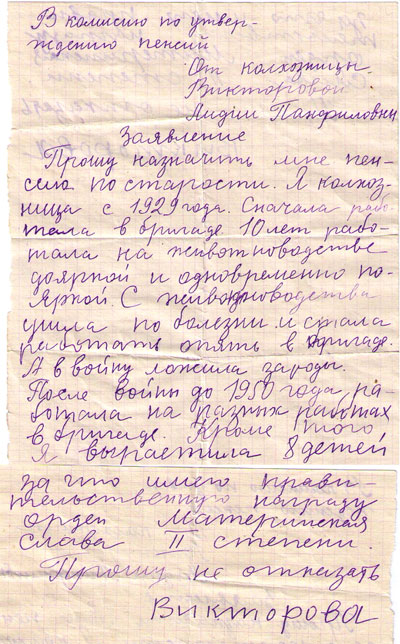 В комисию по утвер-
ждению пенсий
От колхозницы
Викторовой
Лидии Панфиловны
Заявление
Прошу назначить мне пен-
сию по старости. Я колхоз-
ница с 1929 года. Сначала рабо-
тала в бригаде 10 лет рабо-
тала на животноводстве
дояркой и одновременно по-
яркой С животноводства
ушла по болезни и стала
работать опять в бригаде.
А в войну ложила зароды.
После войны до 1950 года ра-
ботала на разных работах
в бригаде. Кроме того
Я вырастила 8 детей
за что имею прави-
тельственную награду
орден Материнская
слава II степени.
Прошу не отказать
Викторова